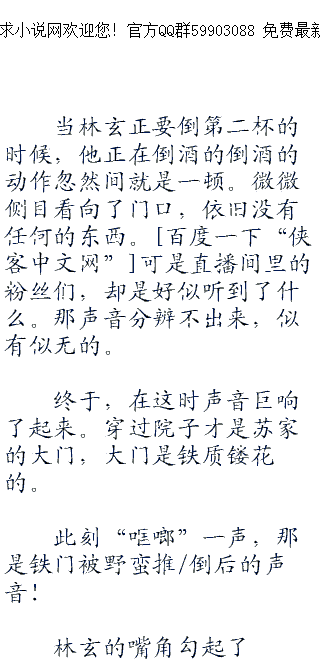 求小说网欢迎您！官方QQ群59903088 免费最新
当林玄正要倒第二杯的
时候，他正在倒酒的倒酒的
动作忽然间就是一顿。微微
侧目看向了门口，依旧没有
任何的东西。[百度一下“侠
客中文网”]可是直播间里的
粉丝们，却是好似听到了什
么。那声音分辨不出来，似
有似无的。
终于，在这时声音巨响
了起来。穿过院子才是苏家
的大门，大门是铁质镂花
的。
此刻“哐啷”一声，那
是铁门被野蛮推/倒后的声
音！
林玄的嘴角勾起了